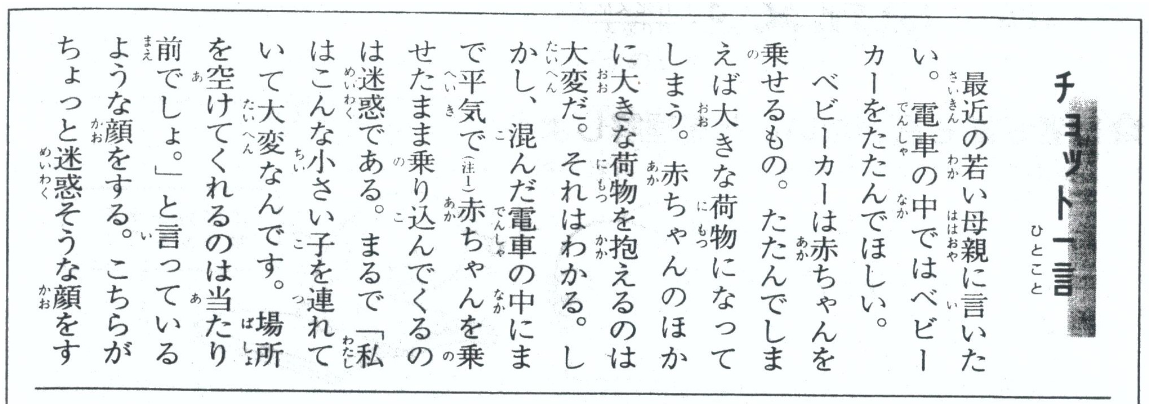 チョット一言
ひとこと
最近の若い母親に言いた
い。電車の中ではベビー
カーをたたんでほしい。
ベビーカーは赤ちゃんを
乗せるもの。たたんでしま
えば大きな荷物になって
しまう。赤ちゃんのほか
に大きな荷物を抱えるのは
大変だ。それはわかる。し
かし、混んだ電車の中にま
で平気で(注1)赤ちゃんを乗
せたまま乗り込んでくるの
は迷惑である。まるで「私
はこんな小さい子を連れて
いて大変なんです。場所
を空けてくれるのは当たり
前でしょ。」と言っている
ような顔をする。こちらが
ちょっと迷惑そうな顔をす